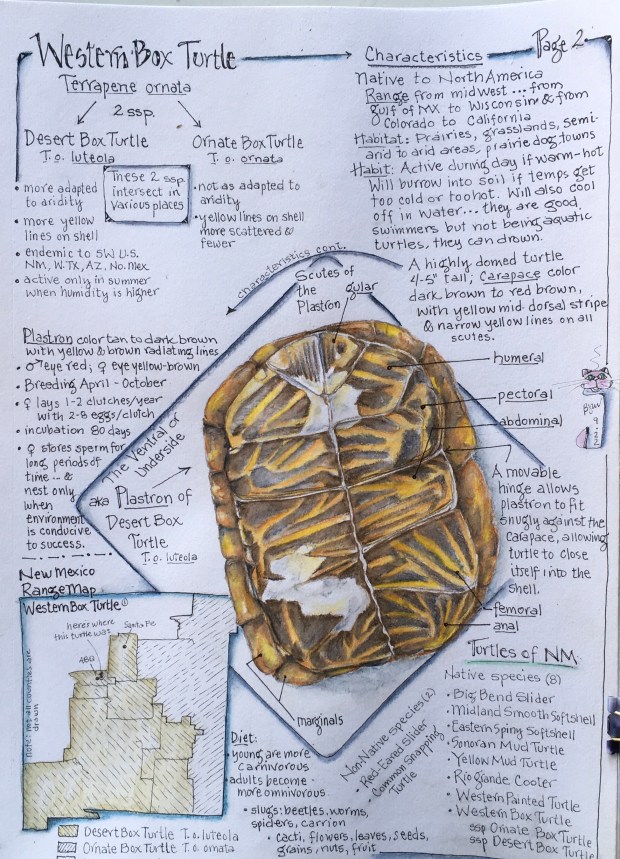 Western Box Turtle
Page 2
Terrapene ornata
2 ssp.
Desert Box Turtle
T. o. luteola
Ornate Box Turtle
T. o. ornata
These 2 ssp.
intersect in
various places
• more adapted
to aridity
• more yellow
lines on shell
• endemic to SW U.S.
NM, W. TX, AZ, No. Mex
• active only in summer
when humidity is higher
• not as adapted to
aridity
• yellow lines on shell
more scattered &
fewer
Characteristics
Native to North America
Range from midwest... from
gulf of MX to Wisconsin & from
Colorado to California
Habitat: Prairies, grasslands, semi-
arid to arid areas, prairie dog towns
Habit: Active during day if warm-hot
Will burrow into soil if temps get
too cold or too hot. Will also cool
off in water... they are good
swimmers but not being aquatic
turtles, they can drown.
A highly domed turtle
4-5" tall; Carapace color
dark brown to red brown,
with yellow mid-dorsal stripe
& narrow yellow lines on all
scutes.
characteristics cont.
Plastron color tan to dark brown
with yellow & brown radiating lines
• ♂ eye red; ♀ eye yellow-brown
• Breeding April - October
• ♀ lays 1-2 clutches/year
with 2-8 eggs/clutch
• incubation 80 days
• ♀ stores sperm for
long periods of
time... &
nest only
when
environment
is conducive
to success.
Scutes of
the
Plastron
gular
humeral
pectoral
abdominal
femoral
anal
marginals
The Ventral or
Underside
aka Plastron of
Desert Box
Turtle
T. o. luteola
A movable
hinge allows
plastron to fit
snugly against the
carapace, allowing
turtle to close
itself into the
shell.
New Mexico
Range Map
Western Box Turtle
here's where
this turtle was
Santa Fe
ABQ
note: not all counties are
drawn
Desert Box Turtle T. o. luteola
Ornate Box Turtle T. o. ornata
Diet:
• young are more
carnivorous
• adults become
more omnivorous
• slugs: beetles, worms,
spiders, carrion
• cacti, flowers, leaves, seeds,
grains, nuts, fruit
Non-Native species (2)
• Red-Eared Slider
• Common Snapping
Turtle
Turtles of NM
Native species (8)
• Big Bend Slider
• Midland Smooth Softshell
• Eastern Spiny Softshell
• Sonoran Mud Turtle
• Yellow Mud Turtle
• Rio Grande Cooter
• Western Painted Turtle
• Western Box Turtle
ssp Ornate Box Turtle
ssp Desert Box Turtle